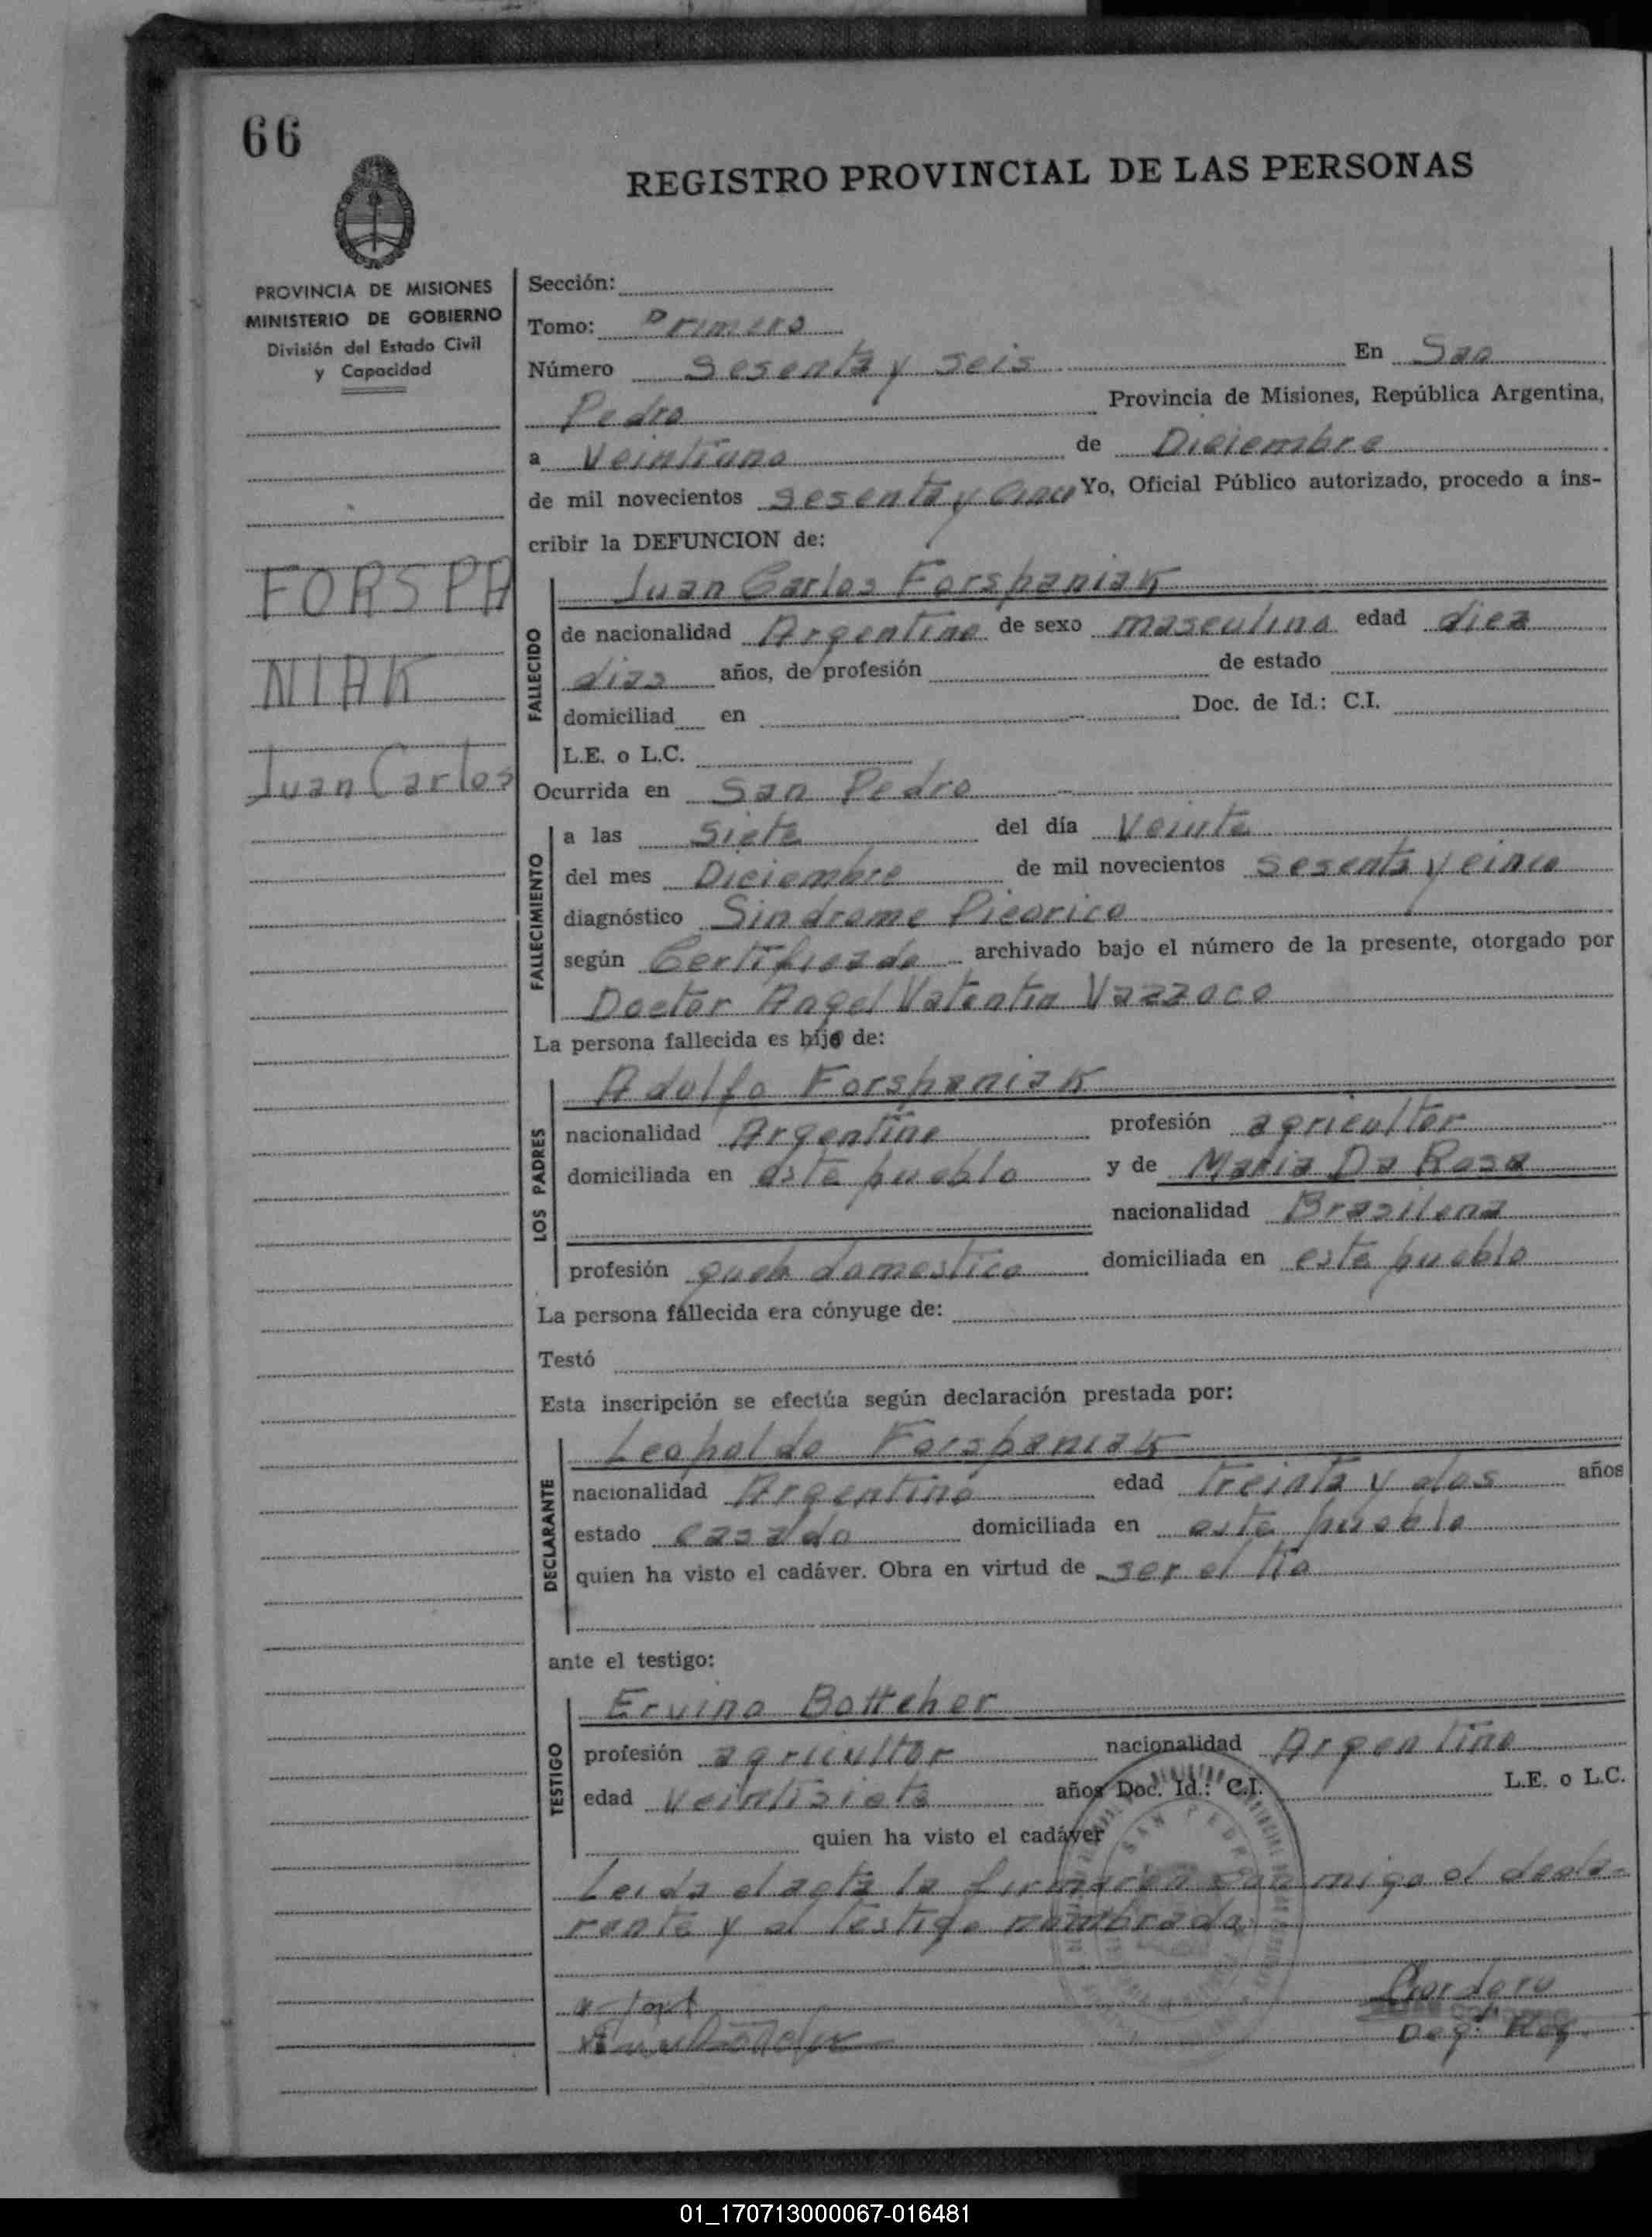 66
REGISTRO PROVINCIAL DE LAS PERSONAS
PROVINCIA DE MISIONES
MINISTERIO DE GOBIERNO
División del Estado Civil
y Capacidad
FORSPA
NIAK
Juan Carlos
Sección:
Tomo: Primero
Número Sesenta y seis En San
Pedro Provincia de Misiones, República Argentina,
a Veintiuno de Diciembre
de mil novecientos sesenta y cinco Yo, Oficial Público autorizado, procedo a ins-
cribir la DEFUNCION de:
FALLECIDO
Juan Carlos Forspaniak
de nacionalidad Argentino de sexo masculino edad diez
dias años, de profesión de estado
domiciliad en Doc. de Id.: C.I.
L.E. o L.C.
Ocurrida en San Pedro
FALLECIMIENTO
a las siete del día Veinte
del mes Diciembre de mil novecientos sesenta y cinco
diagnóstico Sindrome Pieorico
según Certificado archivado bajo el número de la presente, otorgado por
Doctor Angel Valentin Vazzoco
La persona fallecida es hijo de:
LOS PADRES
Adolfo Forspaniak
nacionalidad Argentino profesión agricultor
domiciliada en este pueblo y de Maria Da Rosa
nacionalidad Brasilena
profesión queh domestico domiciliada en este pueblo
La persona fallecida era cónyuge de:
Testó
Esta inscripción se efectúa según declaración prestada por:
DECLARANTE
Leopoldo Forspaniak
nacionalidad Argentino edad treinta y dos años
estado casado domiciliada en este pueblo
quien ha visto el cadáver. Obra en virtud de ser el tio
ante el testigo:
TESTIGO
Ervino Bottcher
profesión agricultor nacionalidad Argentino
edad veintisiete años Doc. Id.: C.I. L.E. o L.C.
quien ha visto el cadáver
SAN PEDRO
Leida el acta la firmaron conmigo el decla-
rante y el testigo nombrado.
Cordero
Deg: Reg.
01_170713000067-016481